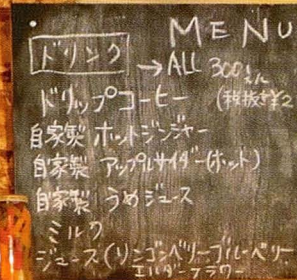 MENU
ドリンク
→ALL 300
ドリップコーヒー (税抜き¥2
自家製 ホットジンジャー
自家製 アップルサイダー(ホット)
自家製 うめジュース
ミルク
ジュース(リンゴンベリー、ブルーベリー
エルダーフラワー